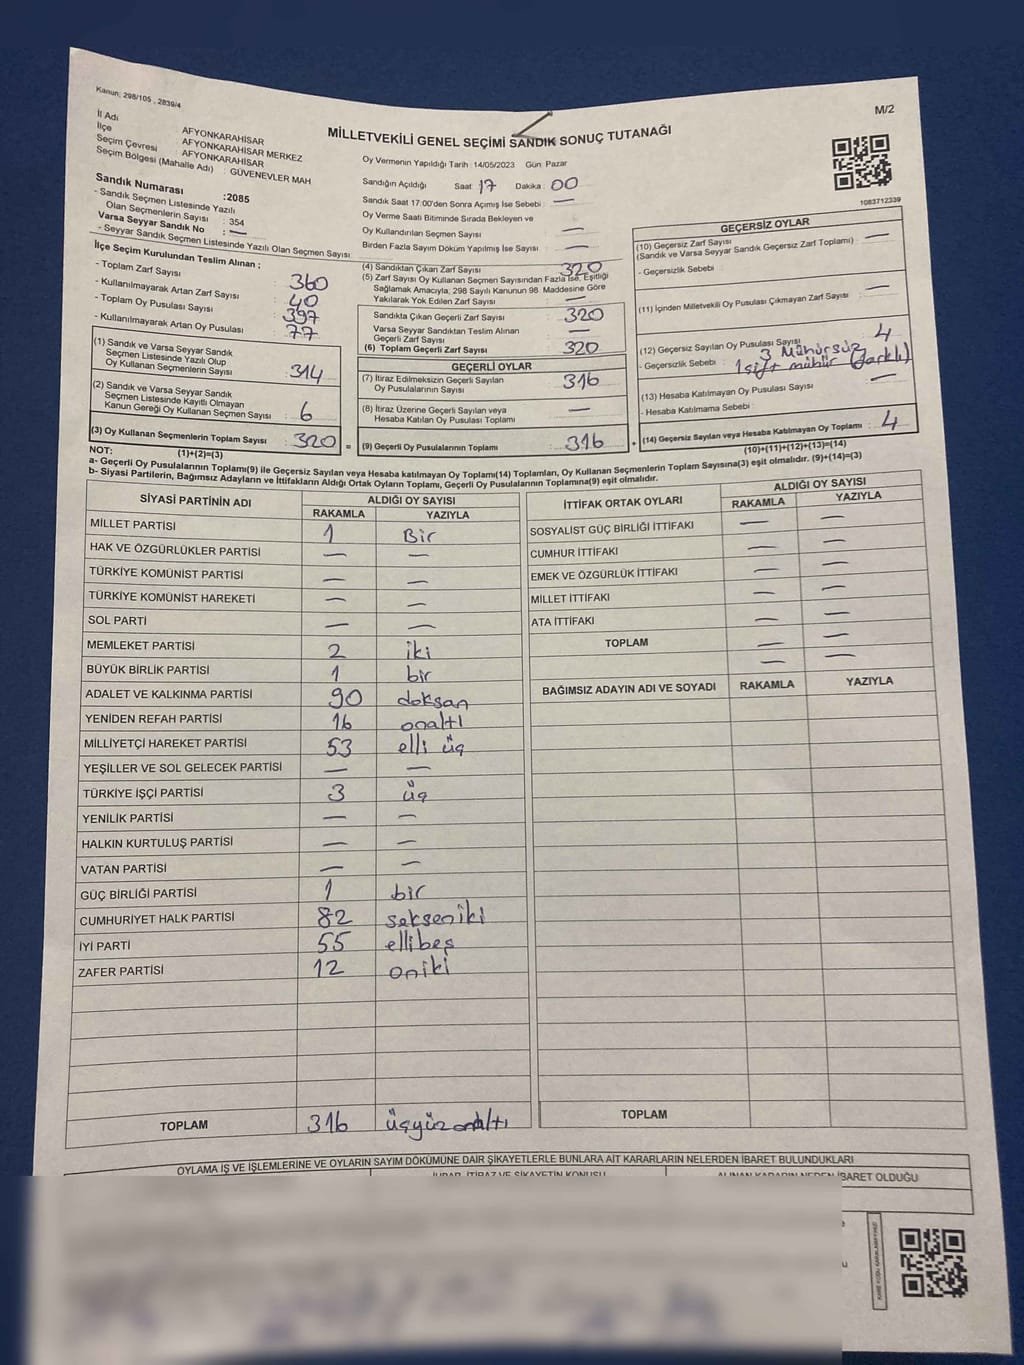 Kanun: 298/105 , 2839/4
M/2
MİLLETVEKİLİ GENEL SEÇİMİ SANDIK SONUÇ TUTANAĞI
İl Adı : AFYONKARAHİSAR
İlçe : AFYONKARAHİSAR MERKEZ
Seçim Çevresi : AFYONKARAHİSAR
Seçim Bölgesi (Mahalle Adı) : GÜVENEVLER MAH
Sandık Numarası :2085
- Sandık Seçmen Listesinde Yazılı
Olan Seçmenlerin Sayısı : 354
Varsa Seyyar Sandık No : —
- Seyyar Sandık Seçmen Listesinde Yazılı Olan Seçmen Sayısı
İlçe Seçim Kurulundan Teslim Alınan ;
- Toplam Zarf Sayısı : 360
- Kullanılmayarak Artan Zarf Sayısı : 40
- Toplam Oy Pusulası Sayısı : 397
- Kullanılmayarak Artan Oy Pusulası : 77
(1) Sandık ve Varsa Seyyar Sandık
Seçmen Listesinde Yazılı Olup
Oy Kullanan Seçmenlerin Sayısı : 314
(2) Sandık ve Varsa Seyyar Sandık
Seçmen Listesinde Kayıtlı Olmayan
Kanun Gereği Oy Kullanan Seçmen Sayısı : 6
(3) Oy Kullanan Seçmenlerin Toplam Sayısı : 320 =
(1)+(2)=(3)
Oy Vermenin Yapıldığı Tarih :14/05/2023 Gün: Pazar
Sandığın Açıldığı Saat : 17 Dakika : 00
Sandık Saat 17:00'den Sonra Açımış İse Sebebi : —
Oy Verme Saati Bitiminde Sırada Bekleyen ve
Oy Kullandırılan Seçmen Sayısı : —
Birden Fazla Sayım Döküm Yapılmış İse Sayısı : —
(4) Sandıktan Çıkan Zarf Sayısı : 320
(5) Zarf Sayısı Oy Kullanan Seçmen Sayısından Fazla İse, Eşitliği
Sağlamak Amacıyla, 298 Sayılı Kanunun 98. Maddesine Göre
Yakılarak Yok Edilen Zarf Sayısı : —
Sandıkta Çıkan Geçerli Zarf Sayısı : 320
Varsa Seyyar Sandıktan Teslim Alınan
Geçerli Zarf Sayısı : —
(6) Toplam Geçerli Zarf Sayısı : 320
GEÇERLİ OYLAR
(7) İtiraz Edilmeksizin Geçerli Sayılan
Oy Pusulalarının Sayısı : 316
(8) İtiraz Üzerine Geçerli Sayılan veya
Hesaba Katılan Oy Pusulası Toplamı : —
(9) Geçerli Oy Pusulalarının Toplamı : 316 +
1083712339
GEÇERSİZ OYLAR
(10) Geçersiz Zarf Sayısı : —
(Sandık ve Varsa Seyyar Sandık Geçersiz Zarf Toplamı)
- Geçersizlik Sebebi :
(11) İçinden Milletvekili Oy Pusulası Çıkmayan Zarf Sayısı : —
(12) Geçersiz Sayılan Oy Pusulası Sayısı : 4
- Geçersizlik Sebebi : 3 Mühürsüz
1 çift mühür (farklı)
(13) Hesaba Katılmayan Oy Pusulası Sayısı : —
- Hesaba Katılmama Sebebi :
(14) Geçersiz Sayılan veya Hesaba Katılmayan Oy Toplamı : 4
(10)+(11)+(12)+(13)=(14)
NOT:
a- Geçerli Oy Pusulalarının Toplamı(9) ile Geçersiz Sayılan veya Hesaba katılmayan Oy Toplamı(14) Toplamları, Oy Kullanan Seçmenlerin Toplam Sayısına(3) eşit olmalıdır. (9)+(14)=(3)
b- Siyasi Partilerin, Bağımsız Adayların ve İttifakların Aldığı Ortak Oyların Toplamı, Geçerli Oy Pusulalarının Toplamına(9) eşit olmalıdır.
SİYASİ PARTİNİN ADI ALDIĞI OY SAYISI
RAKAMLA YAZIYLA
MİLLET PARTİSİ 1 Bir
HAK VE ÖZGÜRLÜKLER PARTİSİ — —
TÜRKİYE KOMÜNİST PARTİSİ — —
TÜRKİYE KOMÜNİST HAREKETİ — —
SOL PARTİ — —
MEMLEKET PARTİSİ 2 iki
BÜYÜK BİRLİK PARTİSİ 1 bir
ADALET VE KALKINMA PARTİSİ 90 doksan
YENİDEN REFAH PARTİSİ 16 onaltı
MİLLİYETÇİ HAREKET PARTİSİ 53 elli üç
YEŞİLLER VE SOL GELECEK PARTİSİ — —
TÜRKİYE İŞÇİ PARTİSİ 3 üç
YENİLİK PARTİSİ — —
HALKIN KURTULUŞ PARTİSİ — —
VATAN PARTİSİ — —
GÜÇ BİRLİĞİ PARTİSİ 1 bir
CUMHURİYET HALK PARTİSİ 82 sekseniki
İYİ PARTİ 55 ellibeş
ZAFER PARTİSİ 12 oniki
TOPLAM 316 üçyüzonaltı
İTTİFAK ORTAK OYLARI ALDIĞI OY SAYISI
RAKAMLA YAZIYLA
SOSYALİST GÜÇ BİRLİĞİ İTTİFAKI — —
CUMHUR İTTİFAKI — —
EMEK VE ÖZGÜRLÜK İTTİFAKI — —
MİLLET İTTİFAKI — —
ATA İTTİFAKI — —
TOPLAM — —
— —
BAĞIMSIZ ADAYIN ADI VE SOYADI RAKAMLA YAZIYLA
TOPLAM
OYLAMA İŞ VE İŞLEMLERİNE VE OYLARIN SAYIM DÖKÜMÜNE DAİR ŞİKAYETLERLE BUNLARA AİT KARARLARIN NELERDEN İBARET BULUNDUKLARI
İHBAR, İTİRAZ VE ŞİKAYETİN KONUSU ALINAN KARARIN NEDEN İBARET OLDUĞU